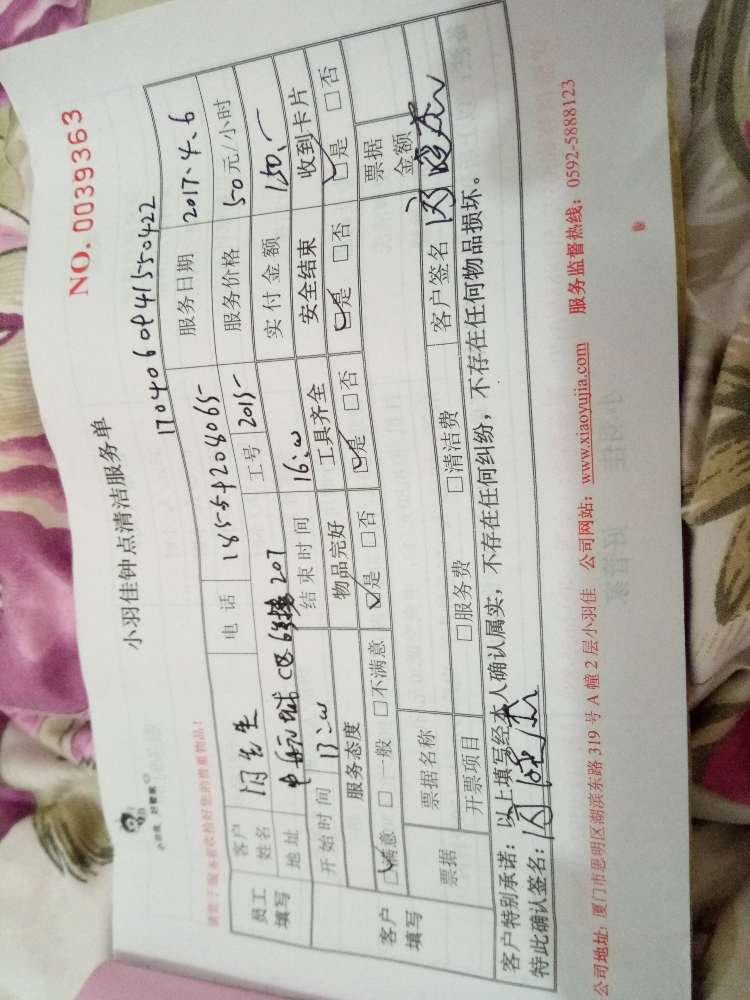 NO. 0039363
小羽佳 好管家
小羽佳钟点清洁服务单
17040609415550422
员工填写
客户姓名
先生
电话
18559208065
服务日期
2017.4.6
地址
207
工号
2015
服务价格
50元/小时
开始时间
13:00
结束时间
16:00
实付金额
150.-
客户填写
服务态度
物品完好
工具齐全
安全结束
收到卡片
☑满意 □一般 □不满意
☑是 □否
☑是 □否
☑是 □否
☑是 □否
票据
票据名称
票据金额
开票项目
□服务费
□清洁费
客户签名
客户特别承诺：以上填写经本人确认属实，不存在任何纠纷，不存在任何物品损坏。
特此确认签名：
公司地址：厦门市思明区湖滨东路 319 号 A 幢 2 层小羽佳 公司网站：www.xiaoyujia.com 服务监督热线：0592-5888123